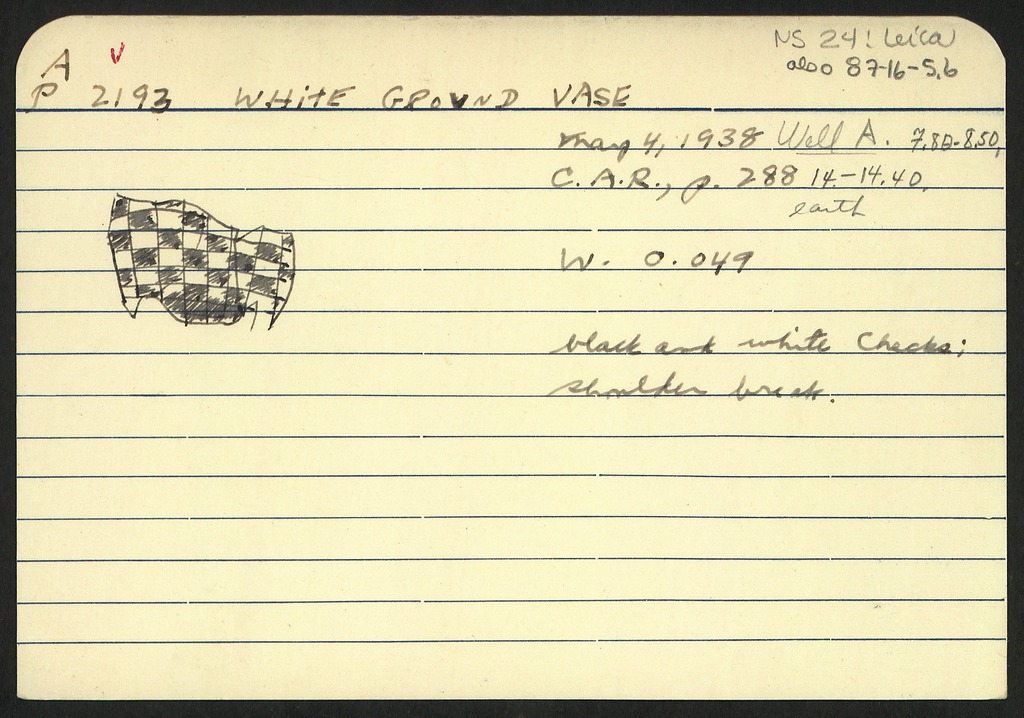 NS 24: Leica
also 87-16-5,6
A v
P 2193 WHITE GROUND VASE
May 4, 1938 Well A. 7.80-8.50,
C.A.R., p. 288 14.-14.40.
earth
W. 0.049
black and white Checks;
shoulder break.